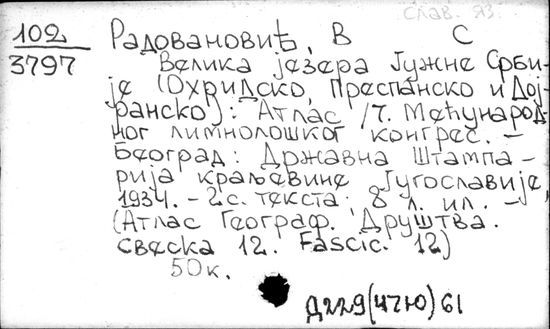 Слав. яз.
102 Радовановић, В С
3797 Велика језера Јужне Срби-
је (Охридско, Преспанско и Дој-
ранско): Атлас /7. Међународ-
ног лимнолошког конгрес. –
Београд: Државна Штампа-
рија краљевине Југославије,
1934. – 2 с. текста. 8 л. ил. –
(Атлас Географ. Друштва.
свеска 12. Fascic. 12)
50к.
Д229(47Ю)61